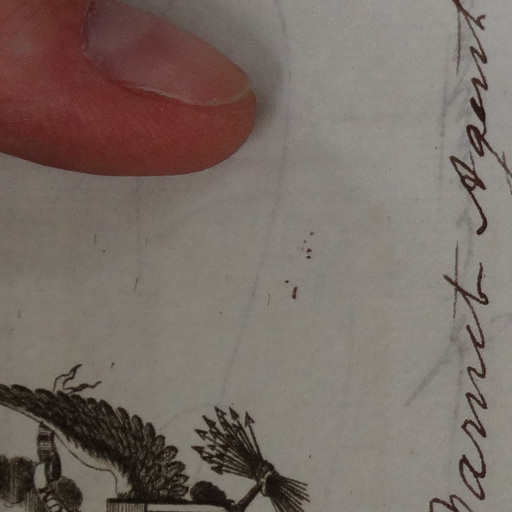 Barret Agent